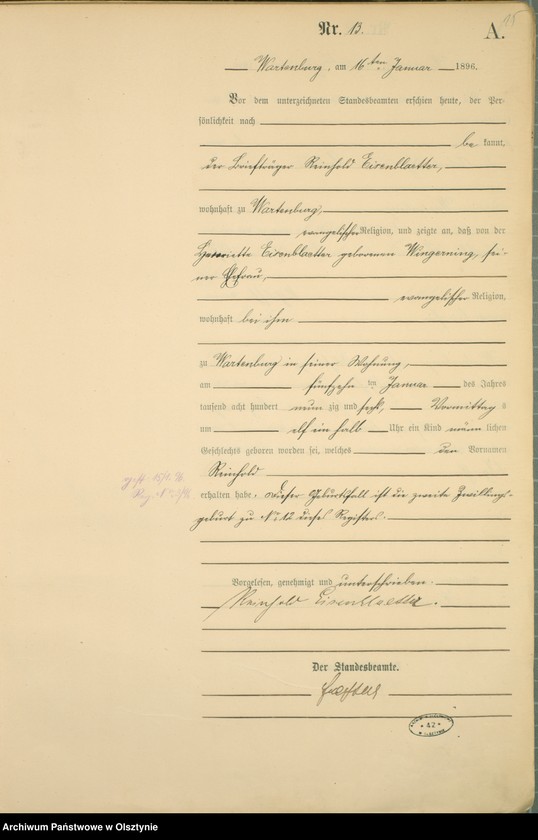 15
Nr. 13.
A.
Wartenburg, am 16ten Januar 1896.
Vor dem unterzeichneten Standesbeamten erschien heute, der Per-
sönlichkeit nach
be kannt,
der Briefträger Reinhold Eisenblaetter,
wohnhaft zu Wartenburg,
evangelischer Religion, und zeigte an, daß von der
Henriette Eisenblaetter geborenen Wingerning, sei-
ner Ehefrau,
evangelischer Religion,
wohnhaft bei ihm
zu Wartenburg in seiner Wohnung,
am fünfzehn ten Januar des Jahres
tausend acht hundert neun zig und sechs, Vormittag s
um elf ein halb Uhr ein Kind männ lichen
Geschlechts geboren worden sei, welches den Vornamen
Reinhold
erhalten habe. Dieser Geburtsfall ist die zweite Zwillings-
geburt zu No 12 dieses Registers.
Vorgelesen, genehmigt und unterschrieben.
Reinhold Eisenblaetter.
Der Standesbeamte.
Archiwum Państwowe w Olsztynie